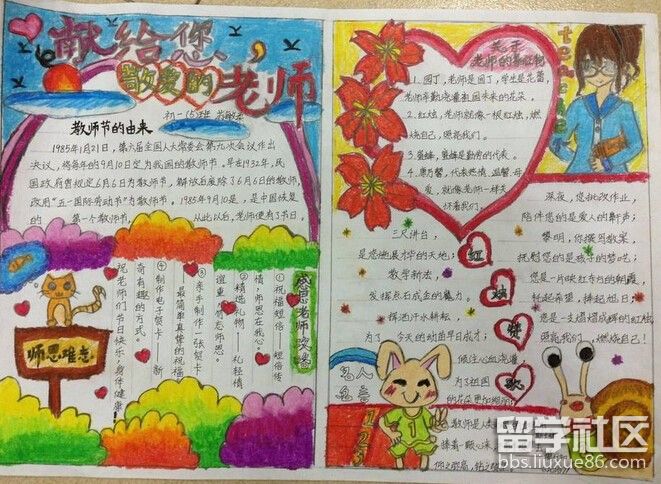 献给您,
敬爱的老师
初一(5)班
教师节的由来
1985年1月21日,第六届全国人大常委会第九次会议作出
决议,将每年的9月10日定为我国的教师节。早在1932年,民
国政府曾规定6月6日为教师节,解放后废除了6月6日的教师节,
改用“五一国际劳动节”为教师节。1985年9月10是,是中国恢复
的 第一个教师节, 从此以后,老师便有了节日。
感恩老师
①祝福短信——短信传
情,师恩在我心。
②精选礼物 礼轻情
谊重
③亲手制作一张贺卡——
最简单真挚的祝福
④制作电子贺卡——新
奇有趣的方式。
祝老师们节日快乐,身体健康!
师恩难忘
关于
老师的
1.园丁,老师是园丁,学生是花蕾,
老师辛勤浇灌祖国未来的花朵。
2.红烛,老师就像一根红烛,燃
烧自己,照亮我们。
3.蜜蜂,蜜蜂是勤劳的代表。
4.康乃馨,代表热情 温馨 母
爱,就像老师一样关
怀着我们。
teacher
三尺讲台,
是您施展才华的天地;
教学新法,
发挥点石成金的魔力。
挥洒汗水耕耘,
为了 今天的幼苗早日成才;
倾注心血浇灌
为了祖国
的花朵更加绚丽
红
烛
颂
歌
深夜,您批改作业,
陪伴您的是爱人的鼾声;
黎明,你撰写教案,
抚慰您的是孩子的梦呓;
您是一片映红东方的朝霞,
托起希望,捧起旭日;
您是一支熠熠成辉的红烛,
照亮我们,燃烧自己!
名人
名言
123
教师是
捧着一颗心来,
留学社区
bbs.liuxue86.com